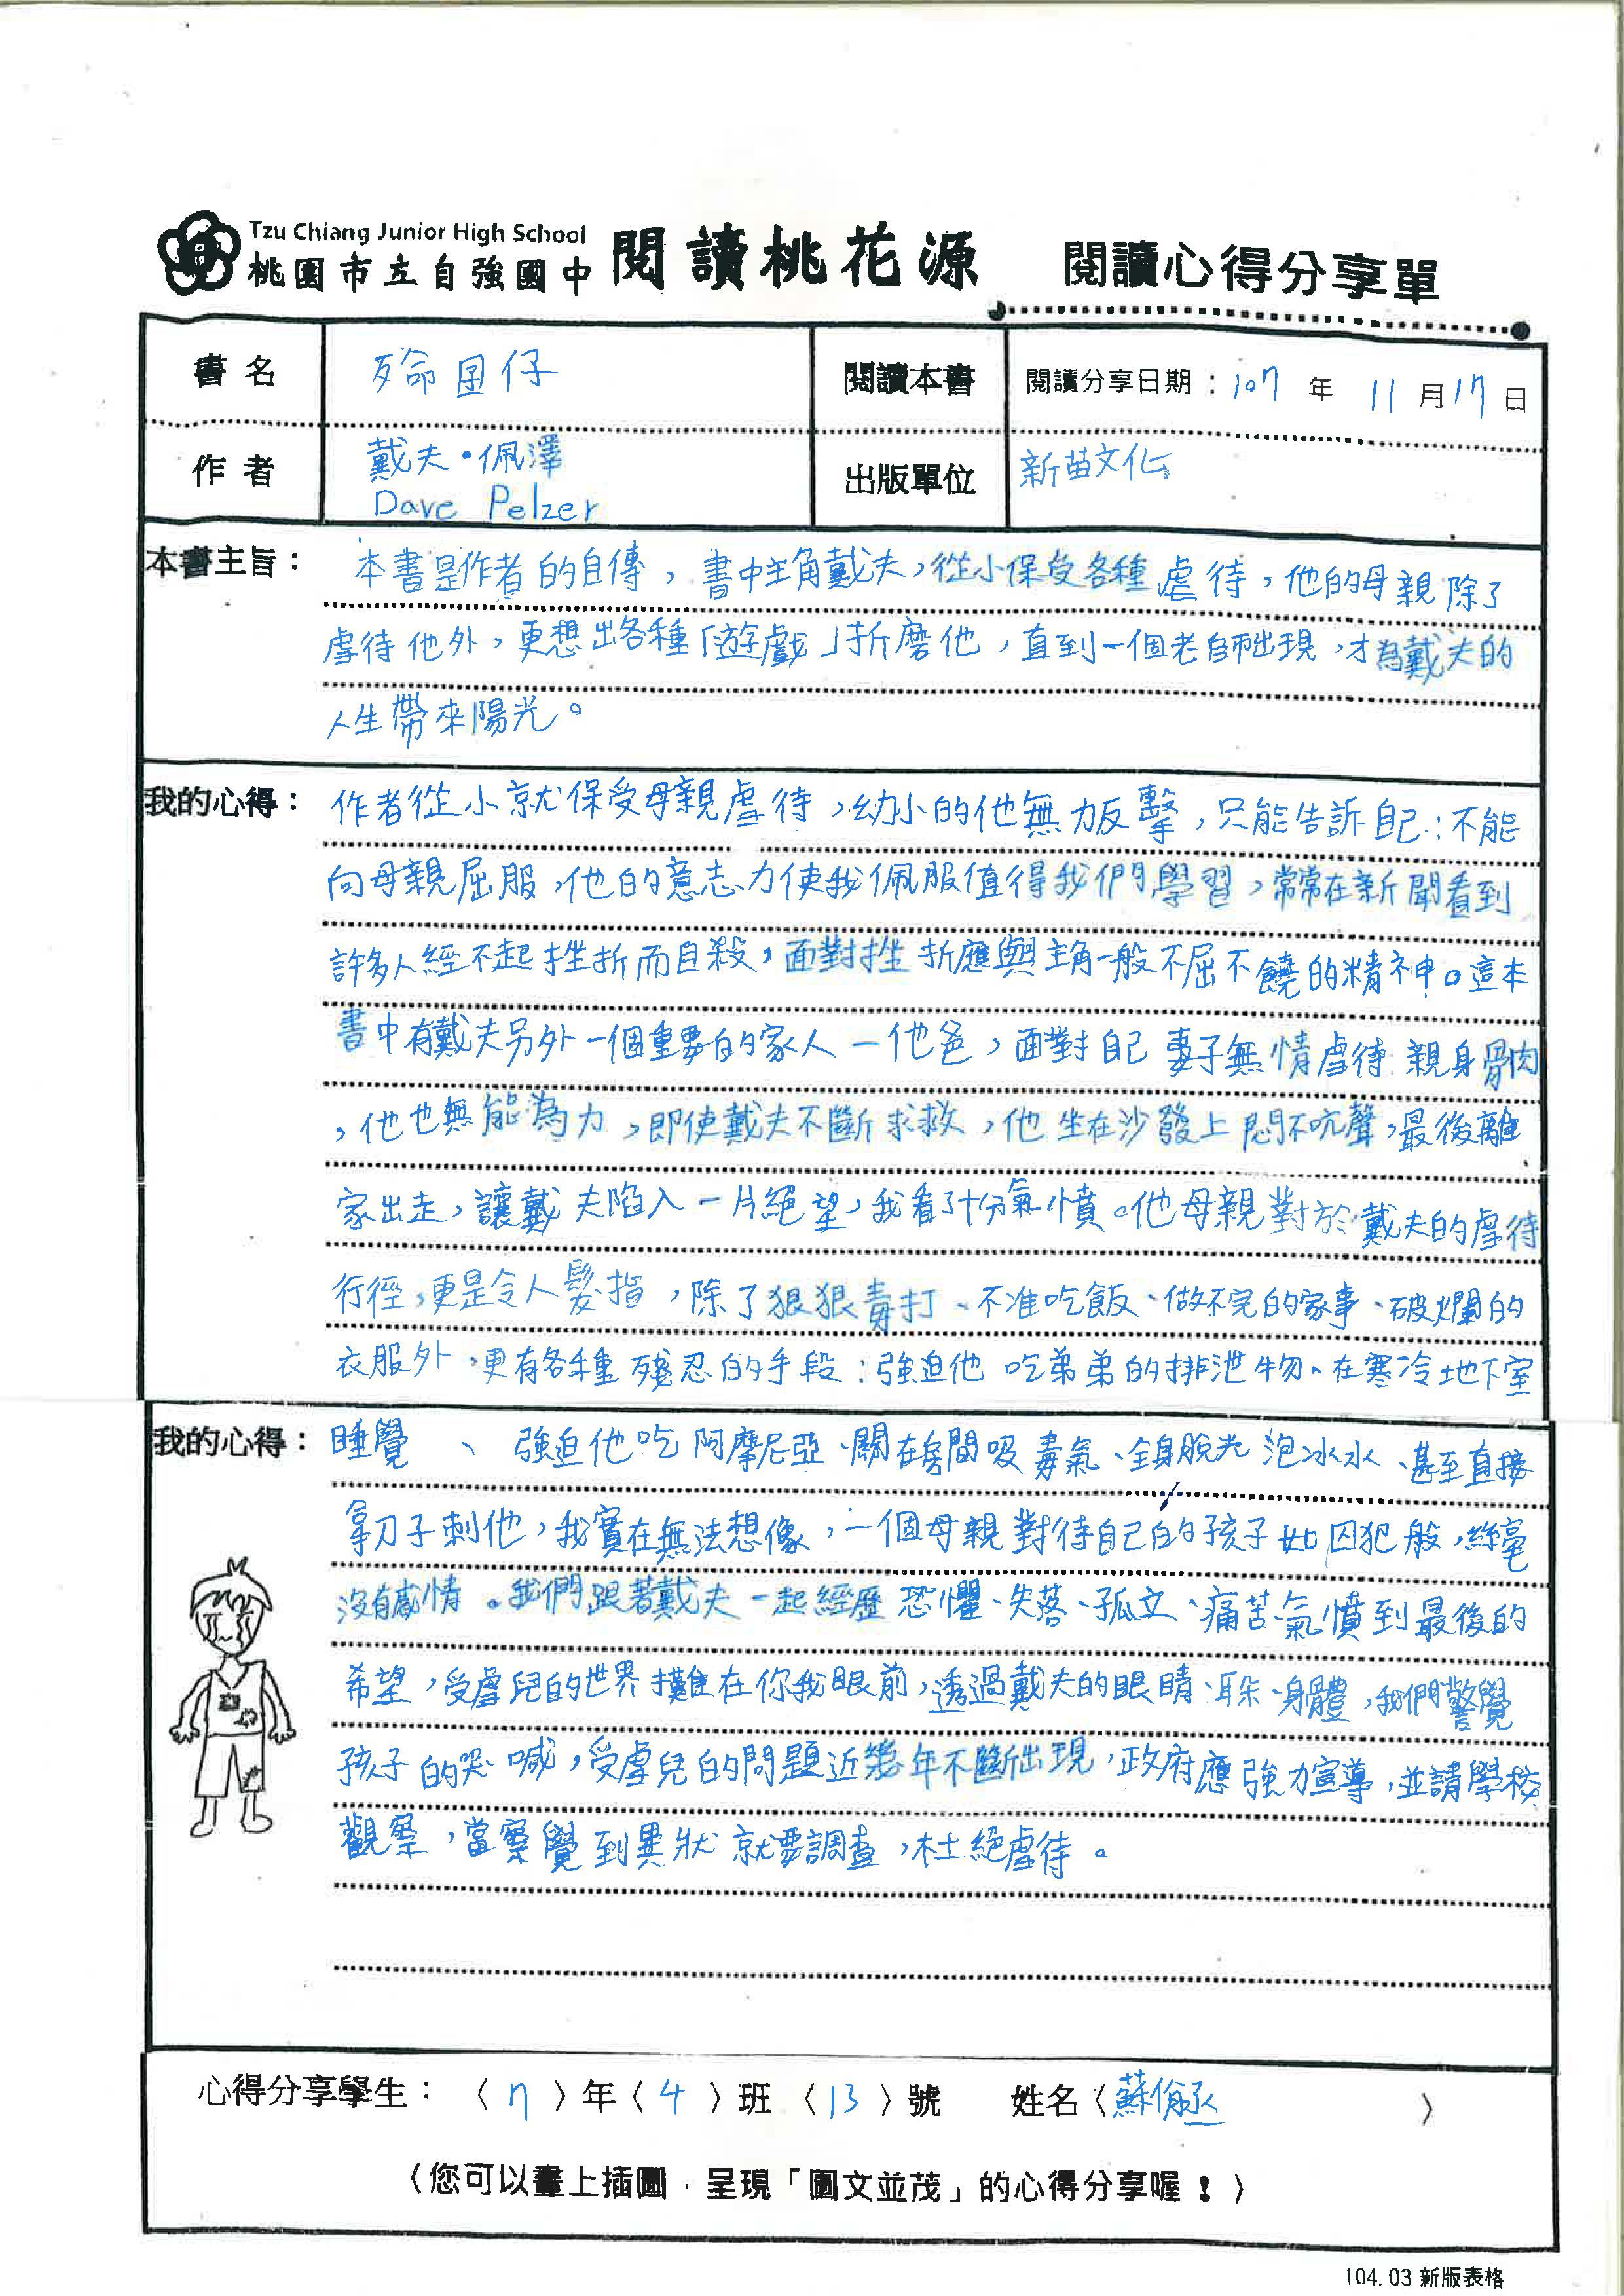 Tzu Chiang Junior High School
桃園市立自強國中 閱讀桃花源 閱讀心得分享單
書名 歹命囝仔 閱讀本書 閱讀分享日期：107年11月17日
作者 戴夫•佩澤 出版單位 新苗文化
Dave Pelzer
本書主旨： 本書是作者的自傳，書中主角戴夫，從小保受各種虐待，他的母親除了
虐待他外，更想出各種「遊戲」折磨他，直到一個老師出現，才為戴夫的
人生帶來陽光。
我的心得： 作者從小就保受母親虐待，幼小的他無力反擊，只能告訴自己：不能
向母親屈服，他的意志力使我佩服值得我們學習，常常在新聞看到
許多人經不起挫折而自殺，面對挫折應與主角一般不屈不饒的精神。這本
書中有戴夫另外一個重要的家人－他爸，面對自己妻子無情虐待親身骨肉
，他也無能為力，即使戴夫不斷求救，他坐在沙發上悶不吭聲，最後離
家出走，讓戴夫陷入一片絕望，我看了十分氣憤。他母親對於戴夫的虐待
行徑，更是令人髮指，除了狠狠毒打、不准吃飯、做不完的家事、破爛的
衣服外，更有各種殘忍的手段：強迫他吃弟弟的排泄物、在寒冷地下室
我的心得： 睡覺、強迫他吃阿摩尼亞、關在房間吸毒氣、全身脫光泡冰水、甚至直接
拿刀子刺他，我實在無法想像，一個母親對待自己的孩子如囚犯般，絲毫
沒有感情。我們跟著戴夫一起經歷恐懼、失落、孤立、痛苦、氣憤到最後的
希望，受虐兒的世界攤在你我眼前，透過戴夫的眼睛、耳朵、身體，我們警覺
孩子的哭喊，受虐兒的問題近幾年不斷出現，政府應強力宣導，並請學校
觀察，當察覺到異狀就要調查，杜絕虐待。
心得分享學生：〈7〉年〈4〉班〈13〉號 姓名〈蘇倫丞〉
〈您可以畫上插圖，呈現「圖文並茂」的心得分享喔！〉
104.03 新版表格